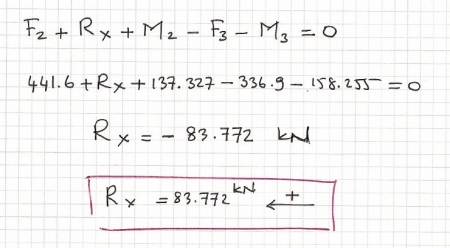 F₂ + Rx + M₂ - F₃ - M₃ = 0
441.6 + Rx + 137.327 - 336.9 - 158.255 = 0
Rx = - 83.772 kN
Rx = 83.772 kN ← +